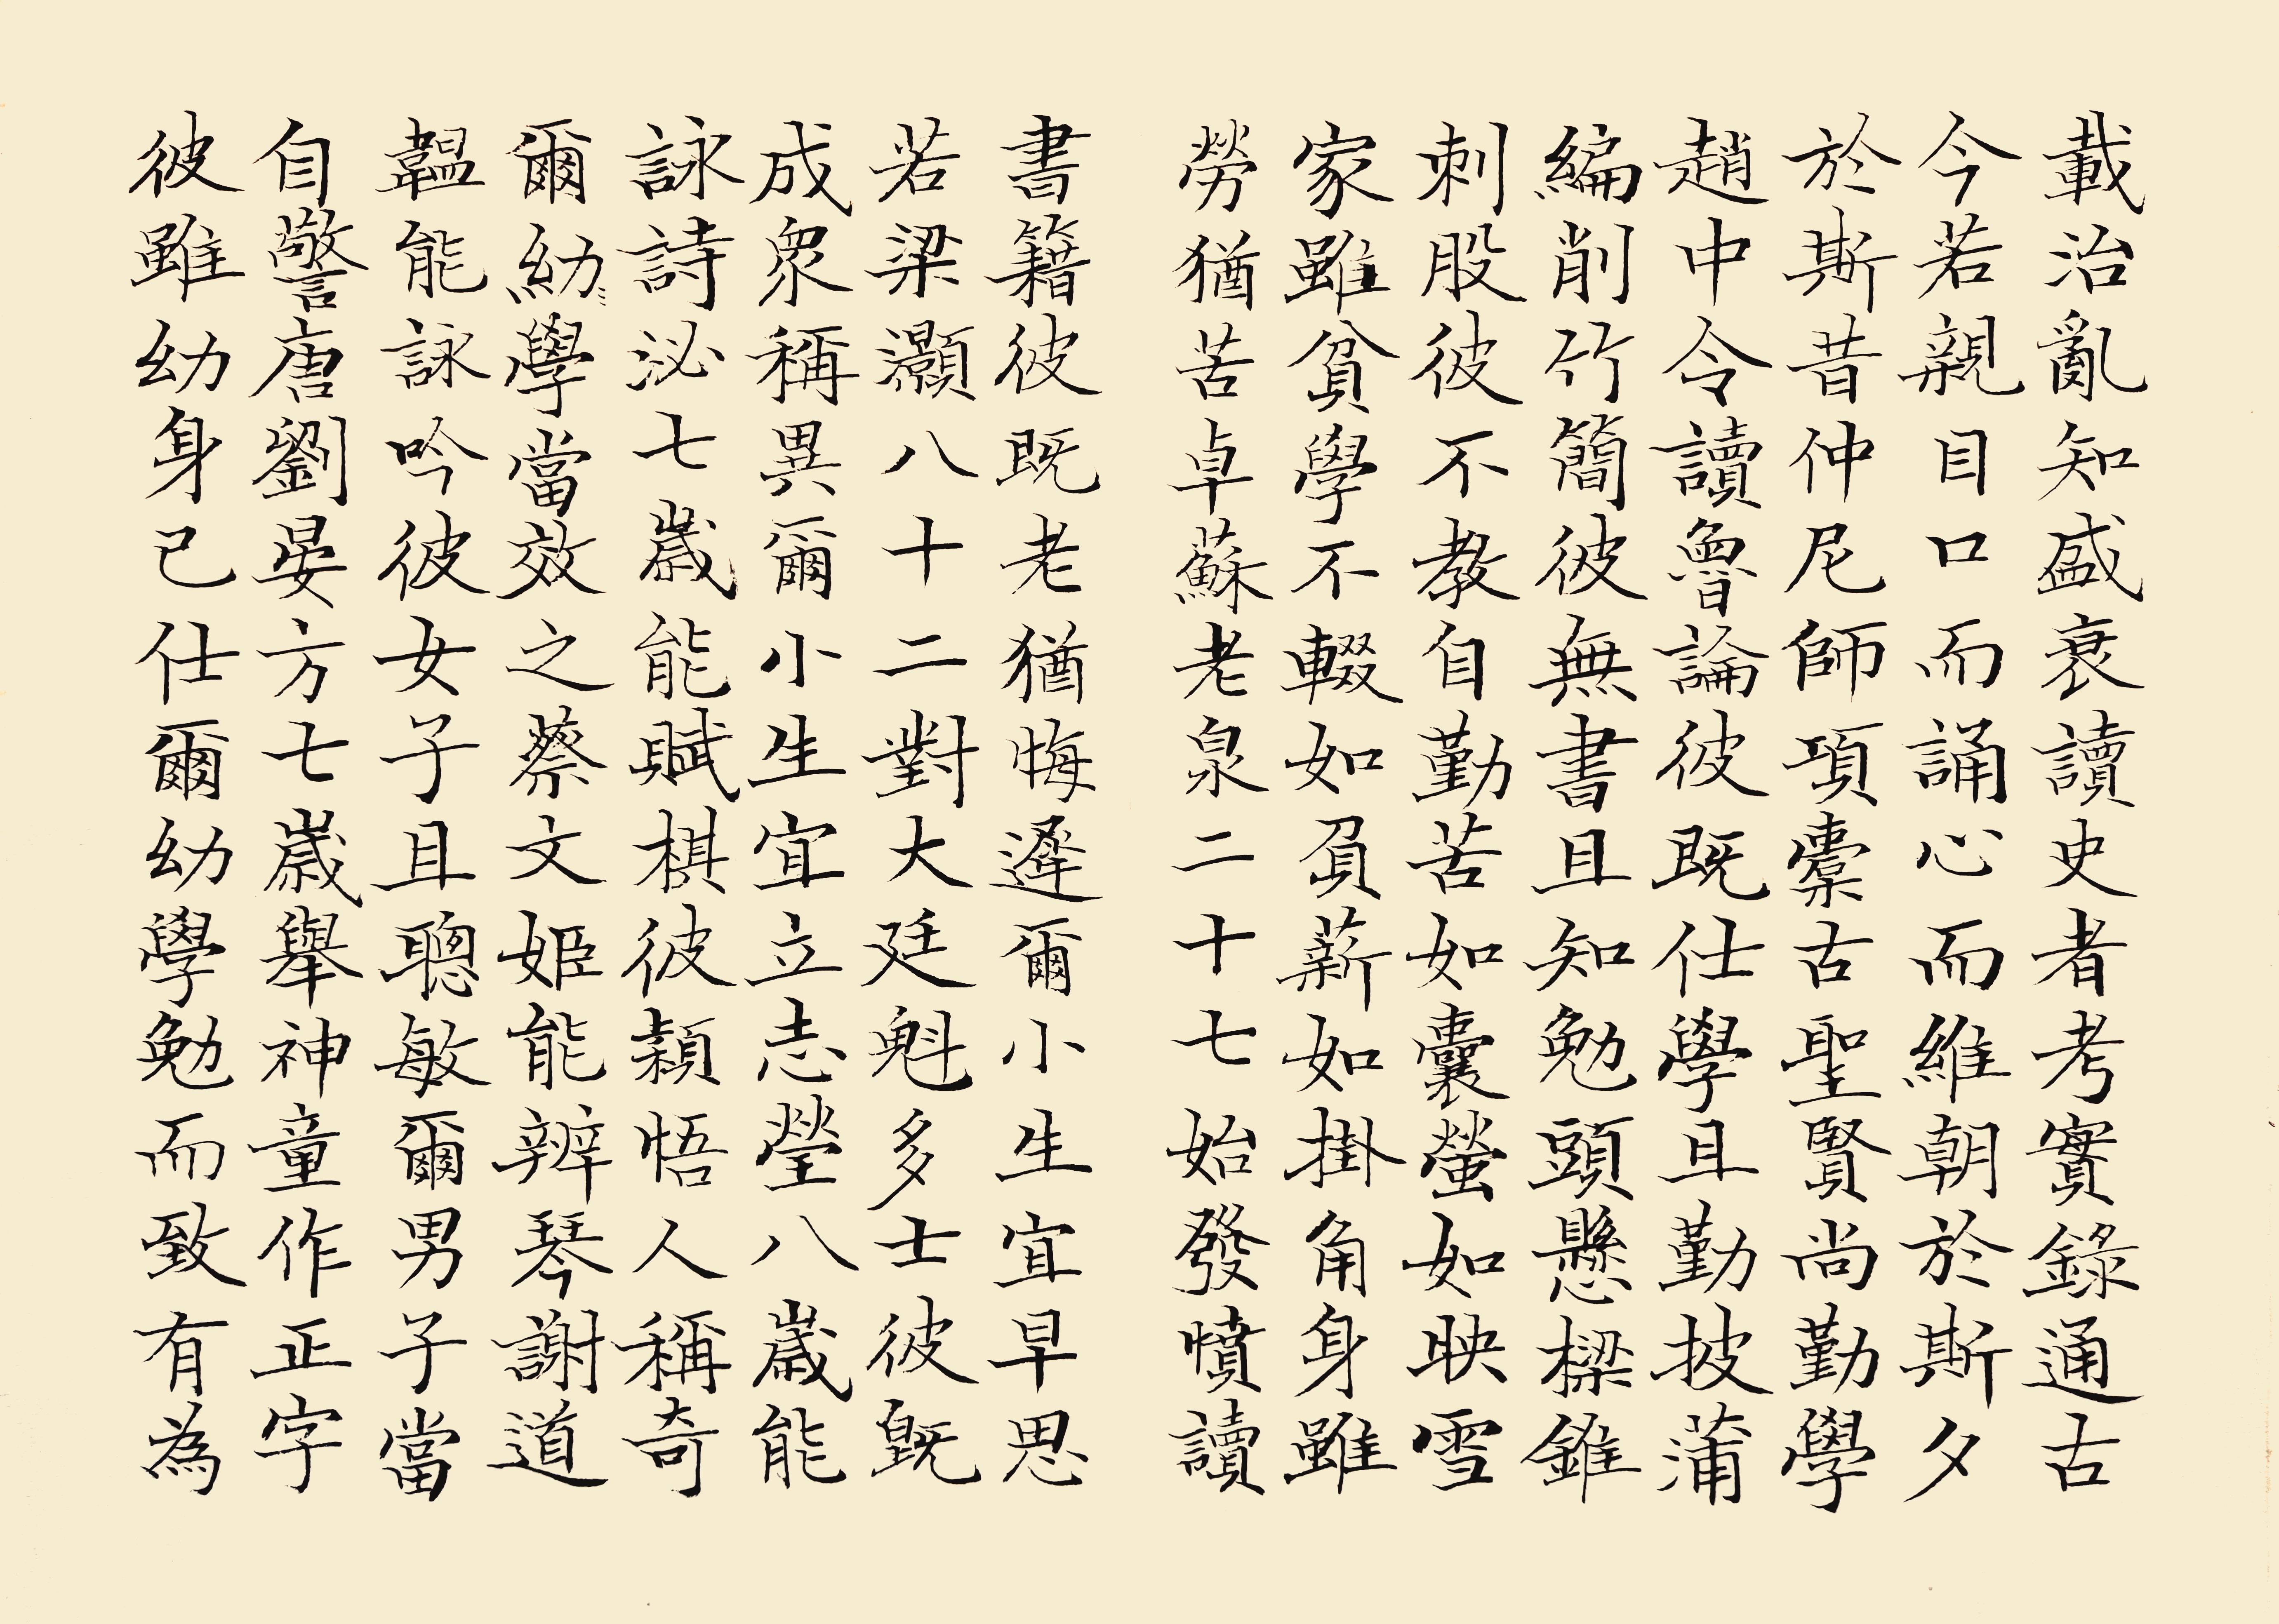 載治亂知盛衰讀史者考實錄通古
今若親目口而誦心而維朝於斯夕
於斯昔仲尼師項橐古聖賢尚勤學
趙中令讀魯論彼既仕學且勤披蒲
編削竹簡彼無書且知勉頭懸樑錐
刺股彼不教自勤苦如囊螢如映雪
家雖貧學不輟如負薪如掛角身雖
勞猶苦卓蘇老泉二十七始發憤讀
書籍彼既老猶悔遲爾小生宜早思
若梁灝八十二對大廷魁多士彼既
成眾稱異爾小生宜立志瑩八歲能
詠詩泌七歲能賦棋彼穎悟人稱奇
爾幼學當效之蔡文姬能辨琴謝道
韞能詠吟彼女子且聰敏爾男子當
自警唐劉晏方七歲舉神童作正字
彼雖幼身己仕爾幼學勉而致有為